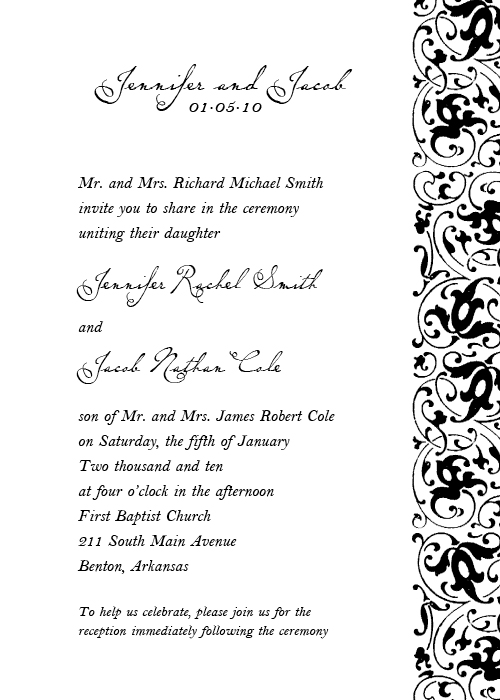 Jennifer and Jacob
01·05·10
Mr. and Mrs. Richard Michael Smith
invite you to share in the ceremony
uniting their daughter
Jennifer Rachel Smith
and
Jacob Nathan Cole
son of Mr. and Mrs. James Robert Cole
on Saturday, the fifth of January
Two thousand and ten
at four o'clock in the afternoon
First Baptist Church
211 South Main Avenue
Benton, Arkansas
To help us celebrate, please join us for the
reception immediately following the ceremony